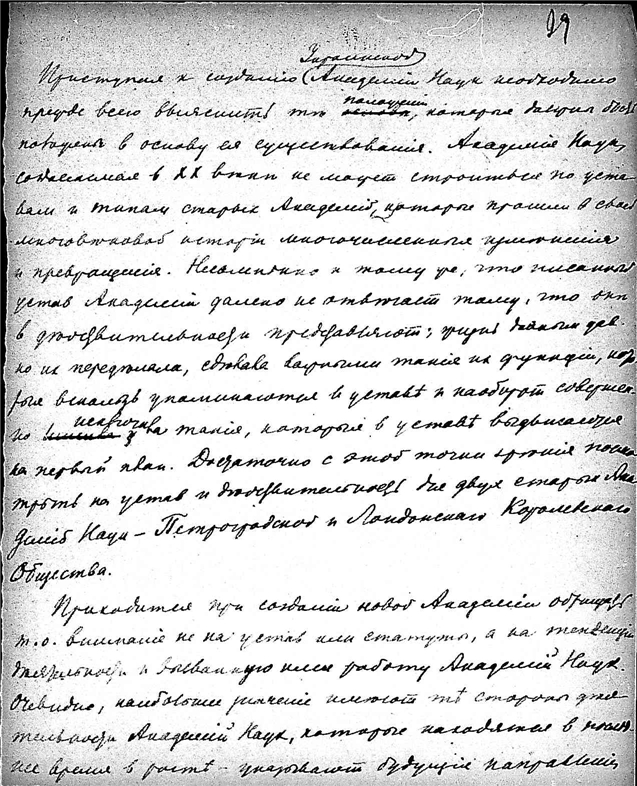 29
Украинской
Приступая к созданію Академіи Наук необходимо
прежде всего выяснить тѣ положенія, которые должны быть
положены в основу ея существованія. Академія Наук,
создаваемая в XX вѣкѣ не может строиться по уста-
вам и типам старых Академій, которые прошли в своей
многовѣковой исторіи многочисленныя измѣненія
и превращенія. Несомнѣнно к тому же, что писанный
устав Академій далеко не отвѣчает тому, что они
в дѣйствительности представляют; жизнь давным дав-
но их передѣлала, сдѣлала важными такія их функціи, кото-
рыя вскользь упоминаются в уставѣ и наоборот совершен-
но такія, которыя в уставѣ выдвигаются
на первый план. Достаточно с этой точки зрѣнія посмо-
трѣть на устав и дѣйствительность двух старых Ака-
демій Наук – Петроградской и Лондонскаго Королевскаго
Общества.
Приходится при созданіи новой Академіи обращать
т.о. вниманіе не на устав или статуты, а на тенденціи
дѣятельности и вызванную ими работу Академій Наук.
Очевидно, наибольшее значеніе имѣют тѣ стороны дѣя-
тельности Академій Наук, которые находятся в послѣд-
нее время в ростѣ – указывают будущіе направленія